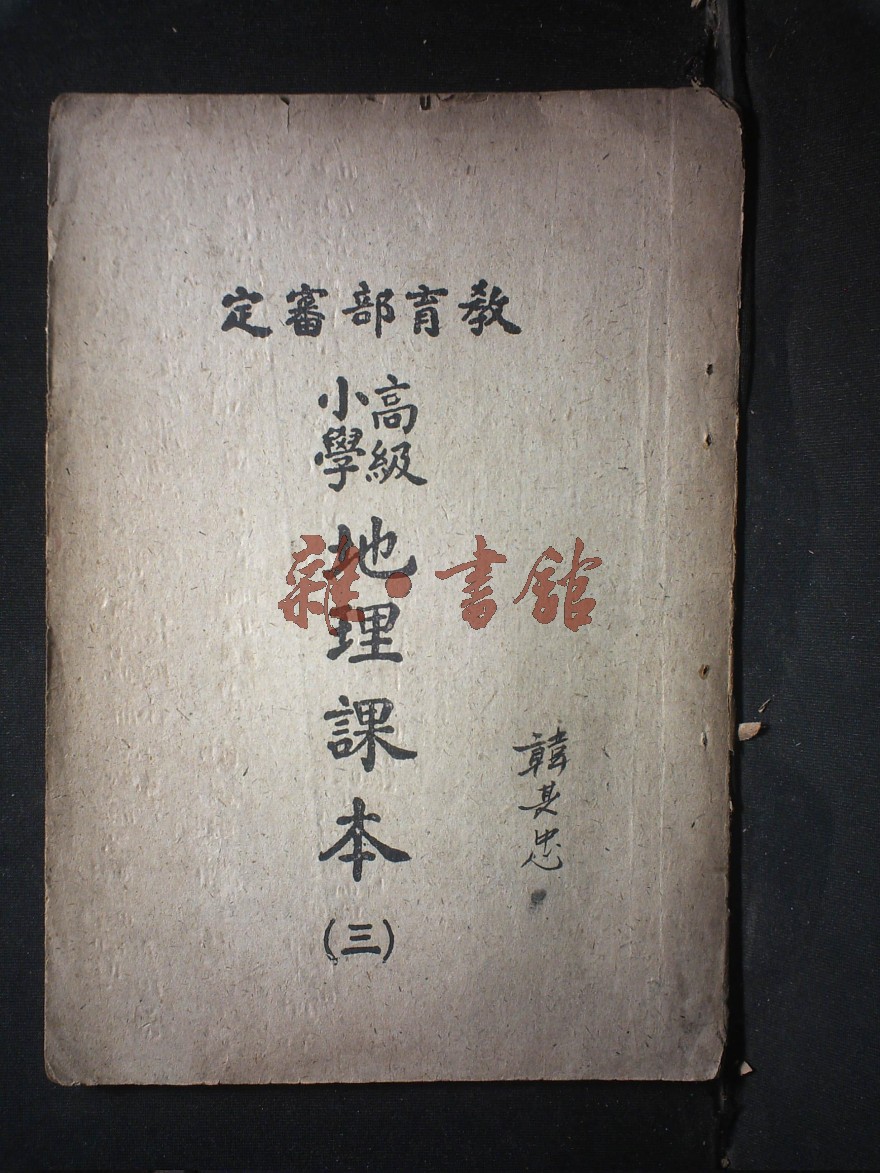 教育部審定
高級
小學
地理課本
(三)
韓其忠
雜·書館